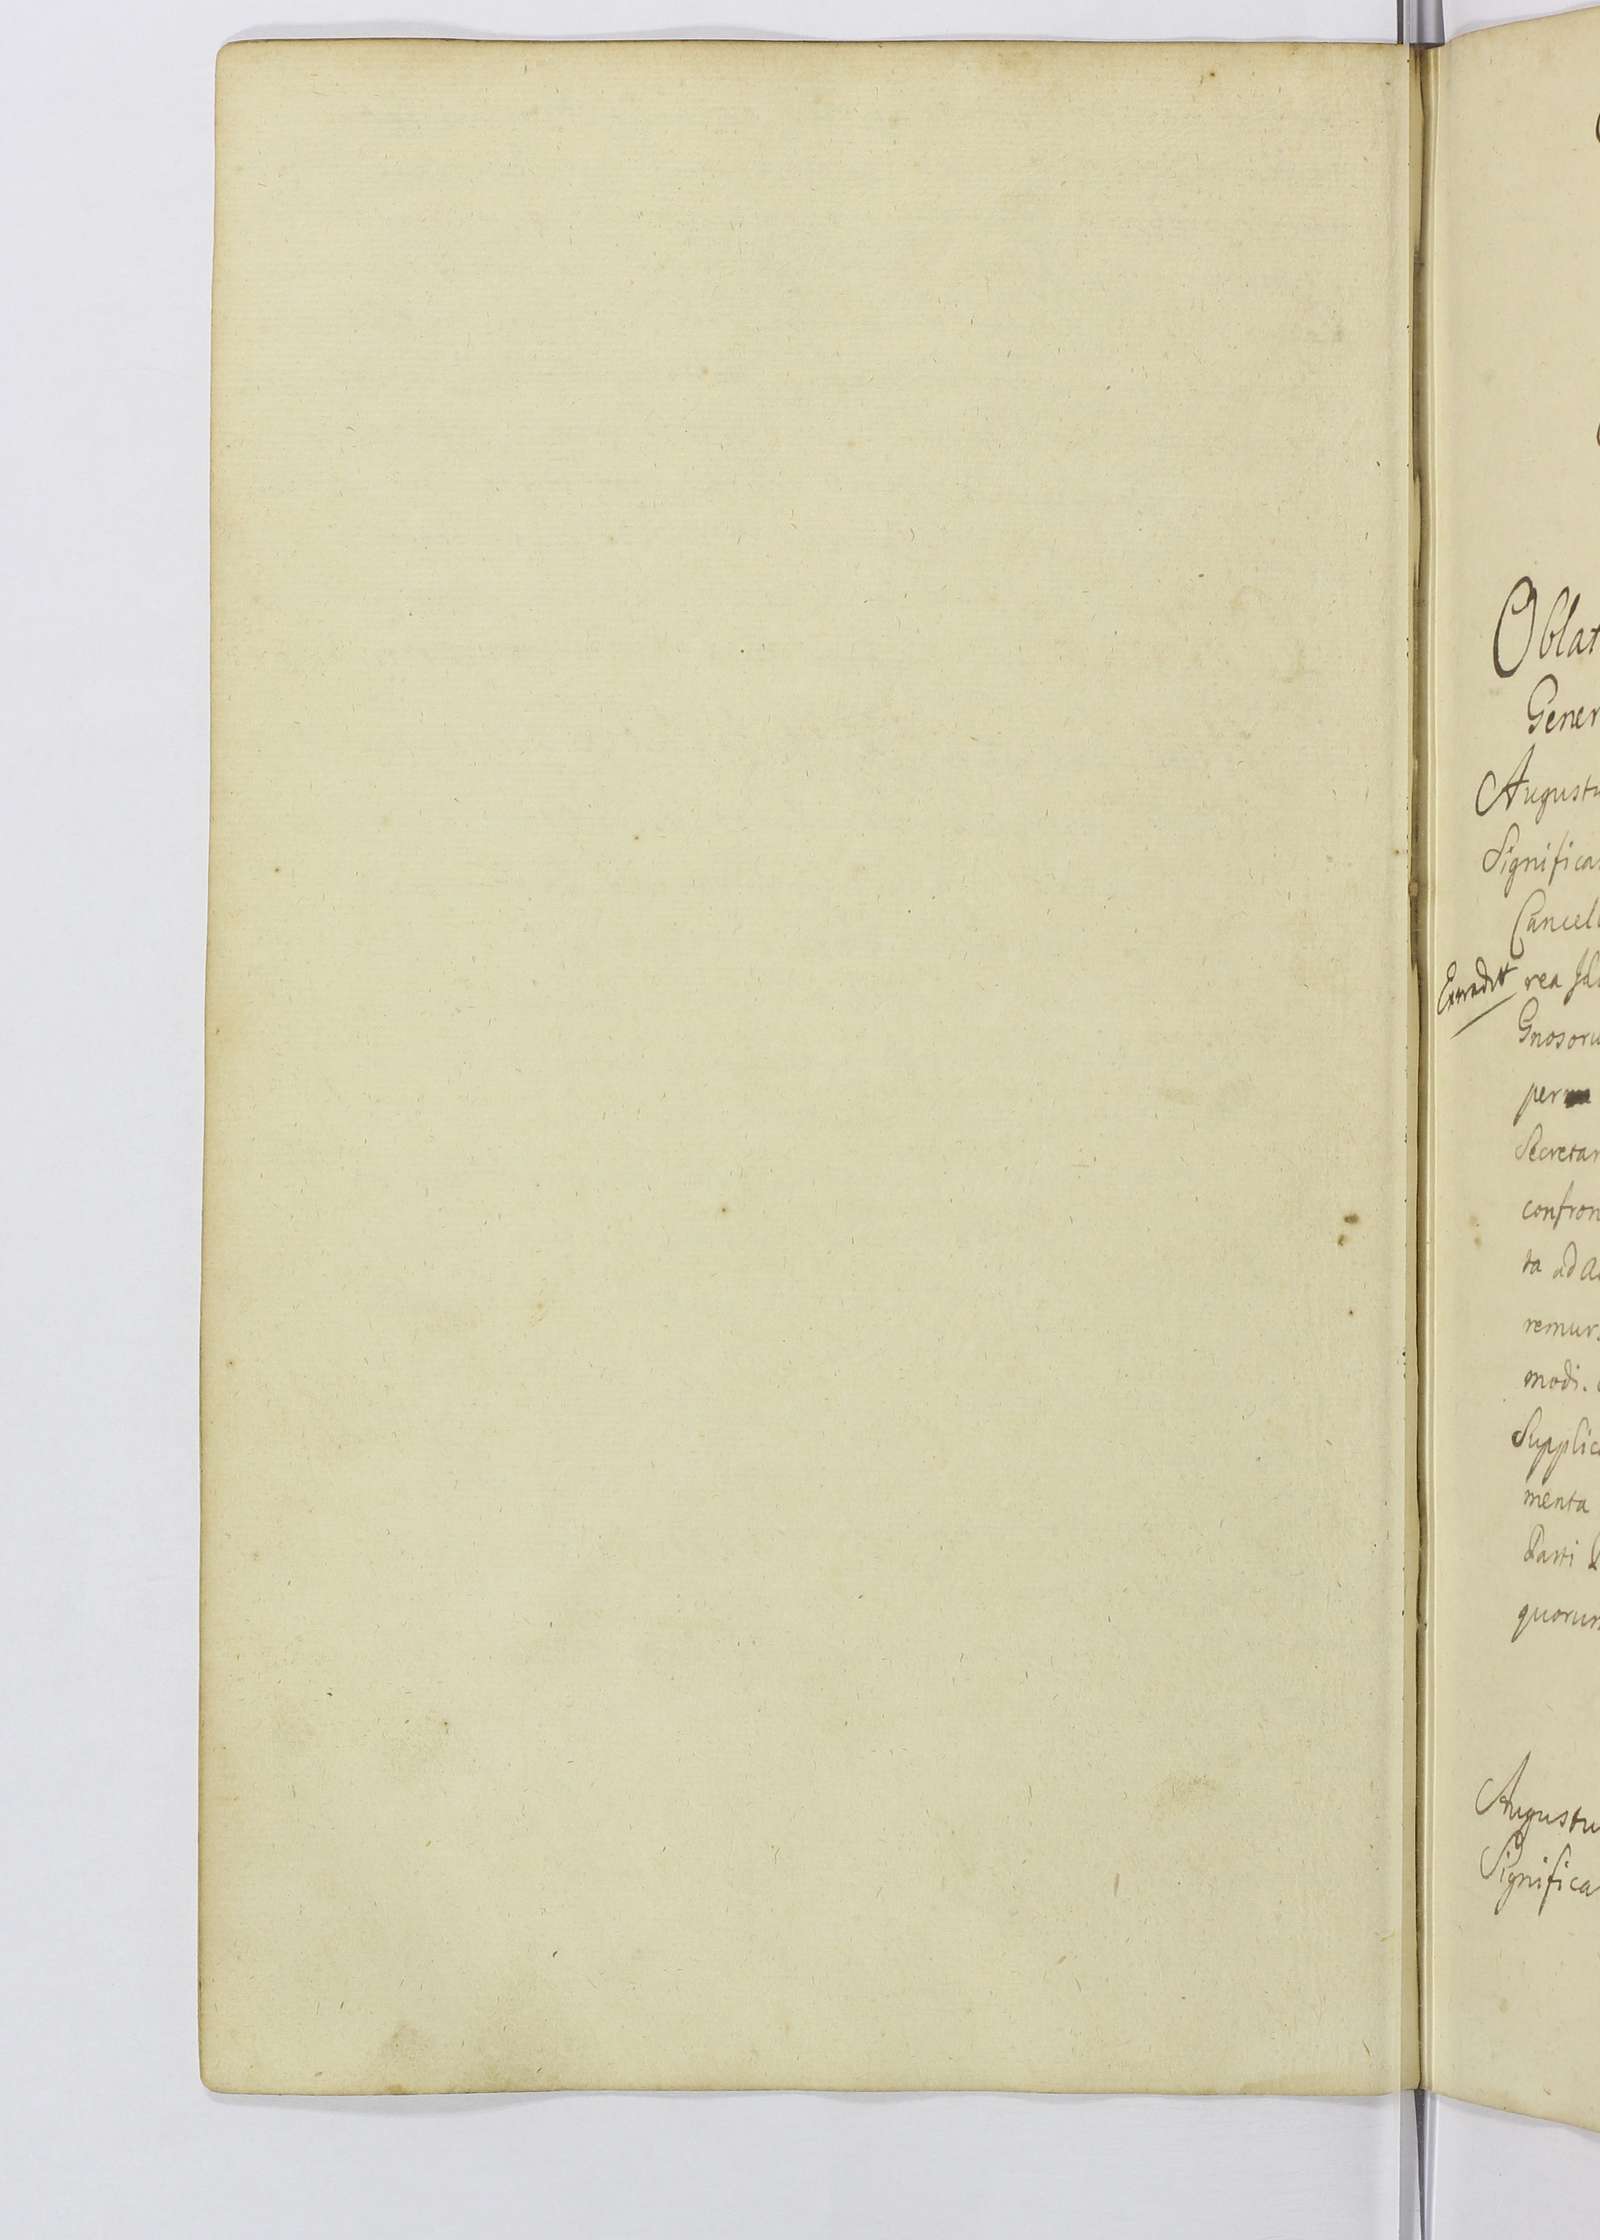 Oblat
Gener
Augustu
Significa
Cancel
Extradit
rea
Gnosoru
per
Secretar
confron
ta ad a
remurs
modi.
Supplica
menta
Parti
quorum
Augustu
Significa